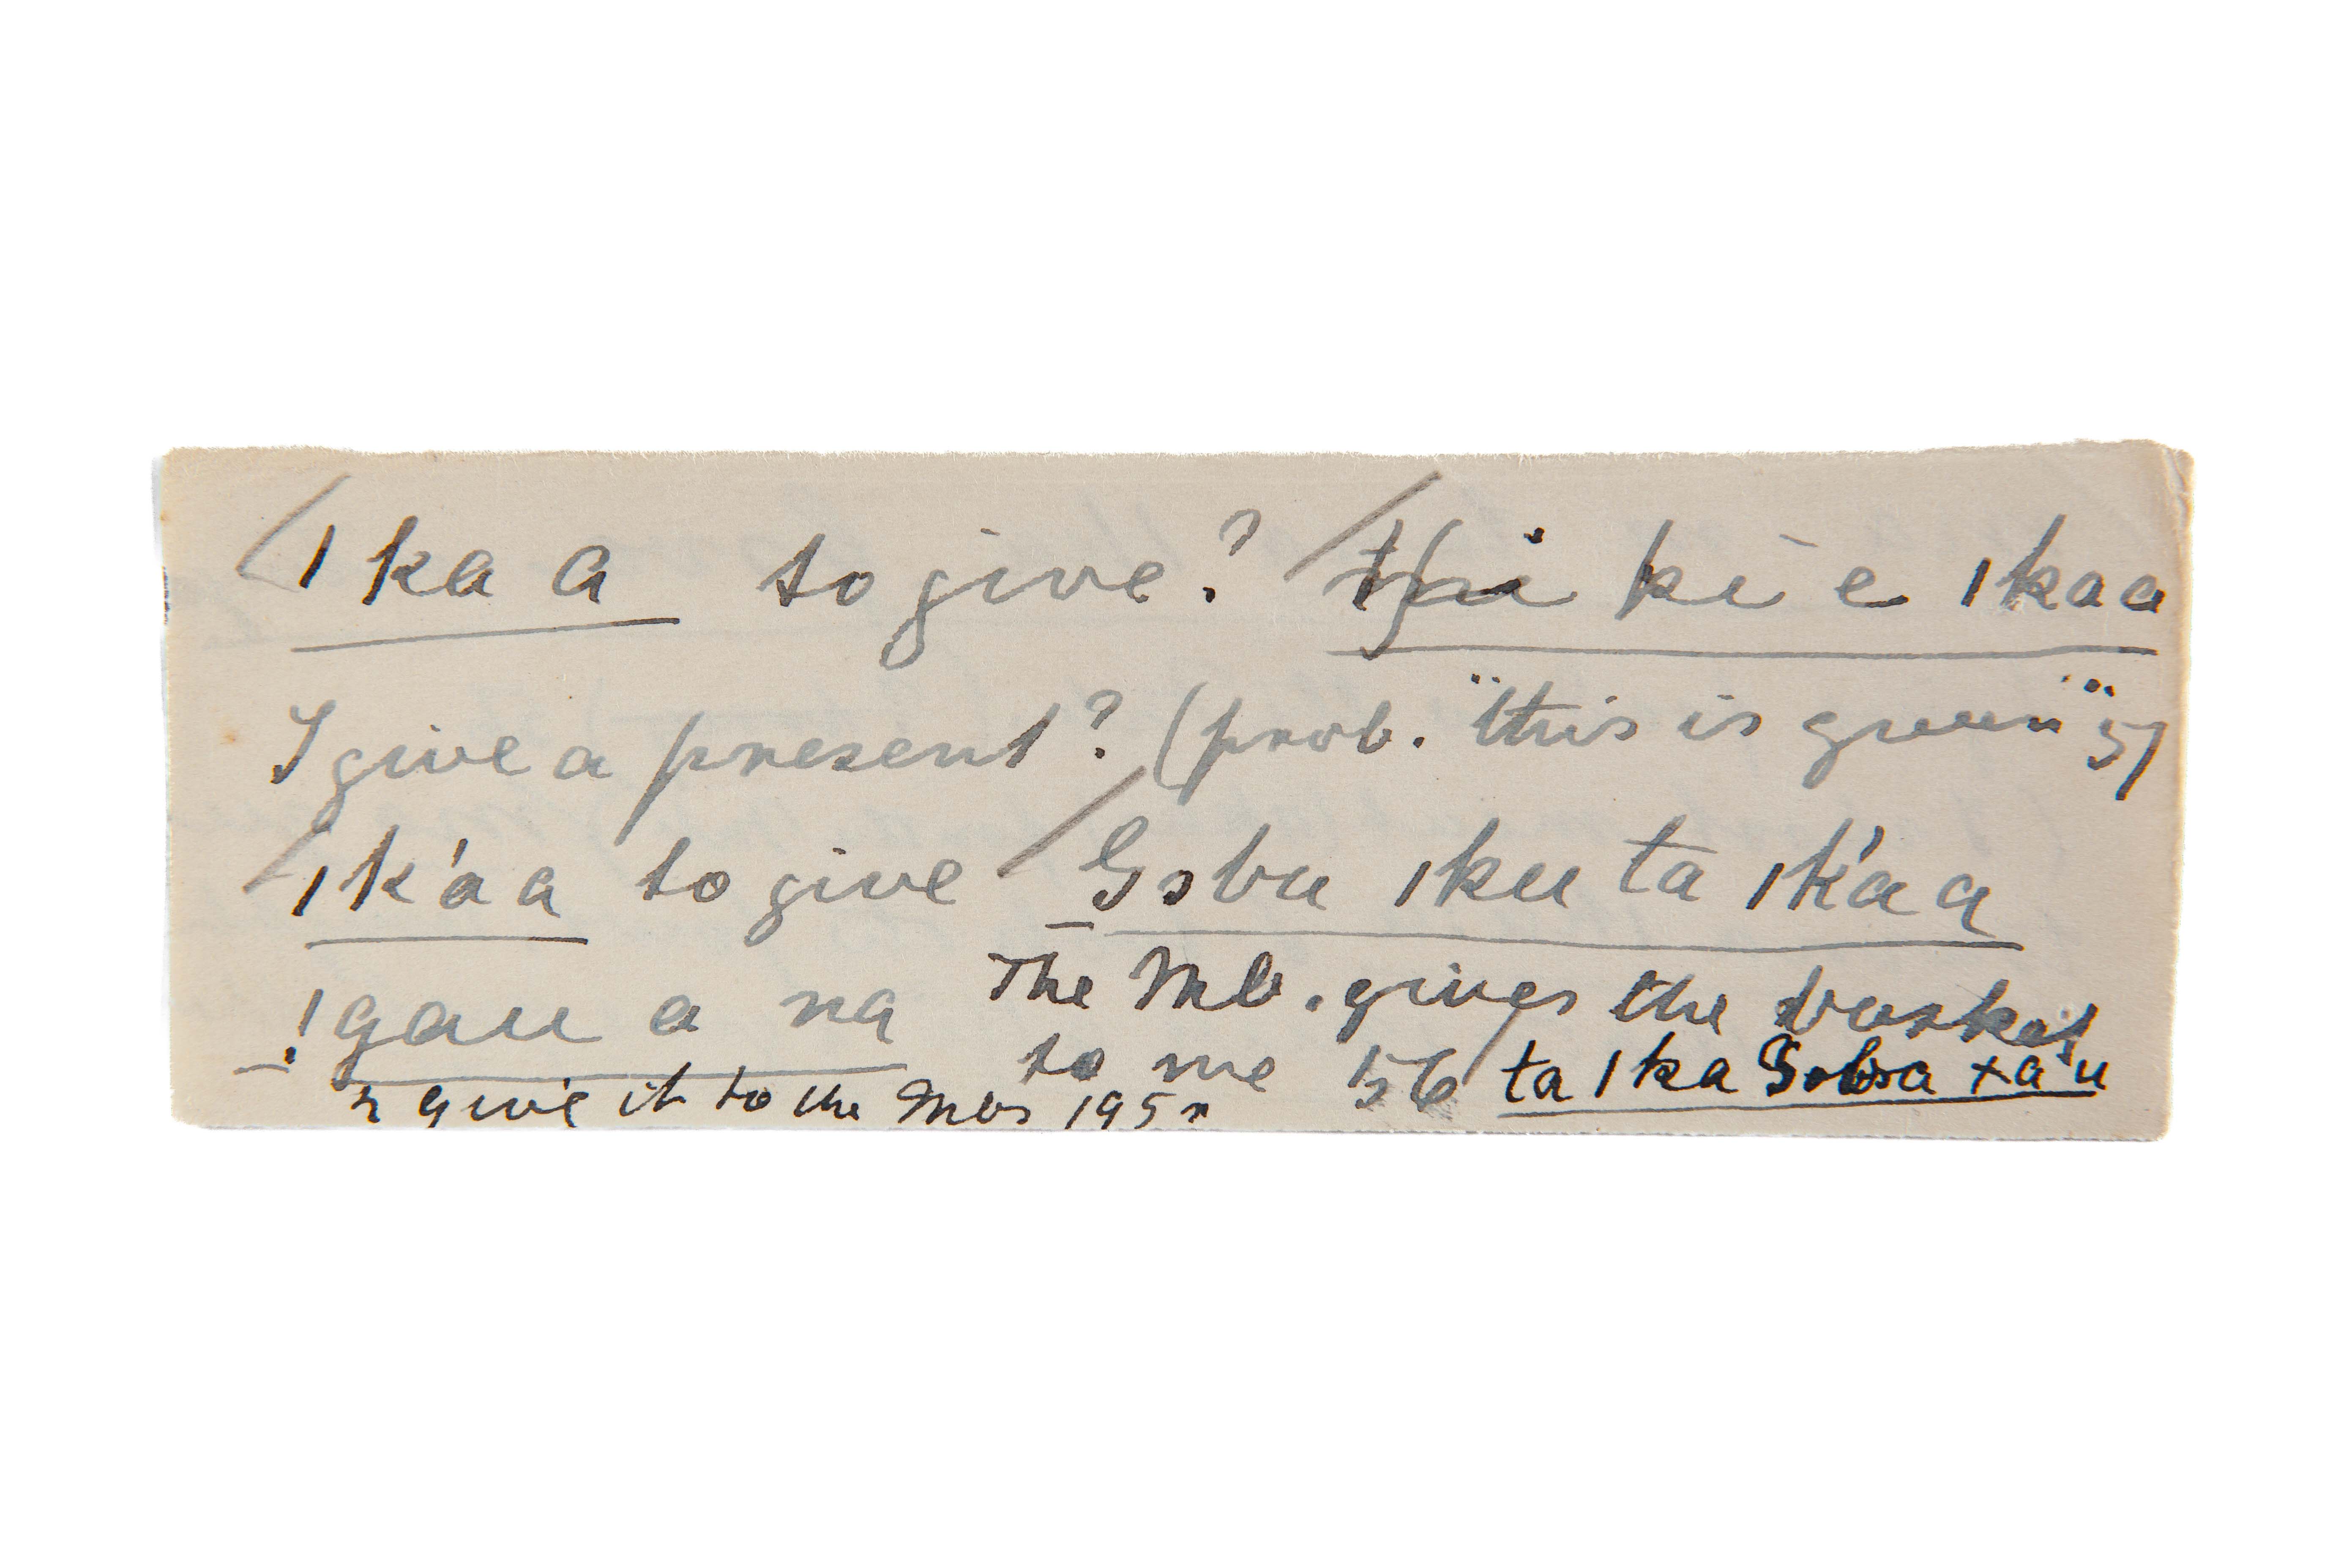 /ǀkaa to give? / ha ki e ǀkaa
I give a present? (prob. "this is given" 57
/ǀk'aa to give / Goba ǀku ta ǀk'aa
!gau a na The Mb. gives the basket
to me 56 ta ǀka Goba xa'u
I give it to the Mbs 195